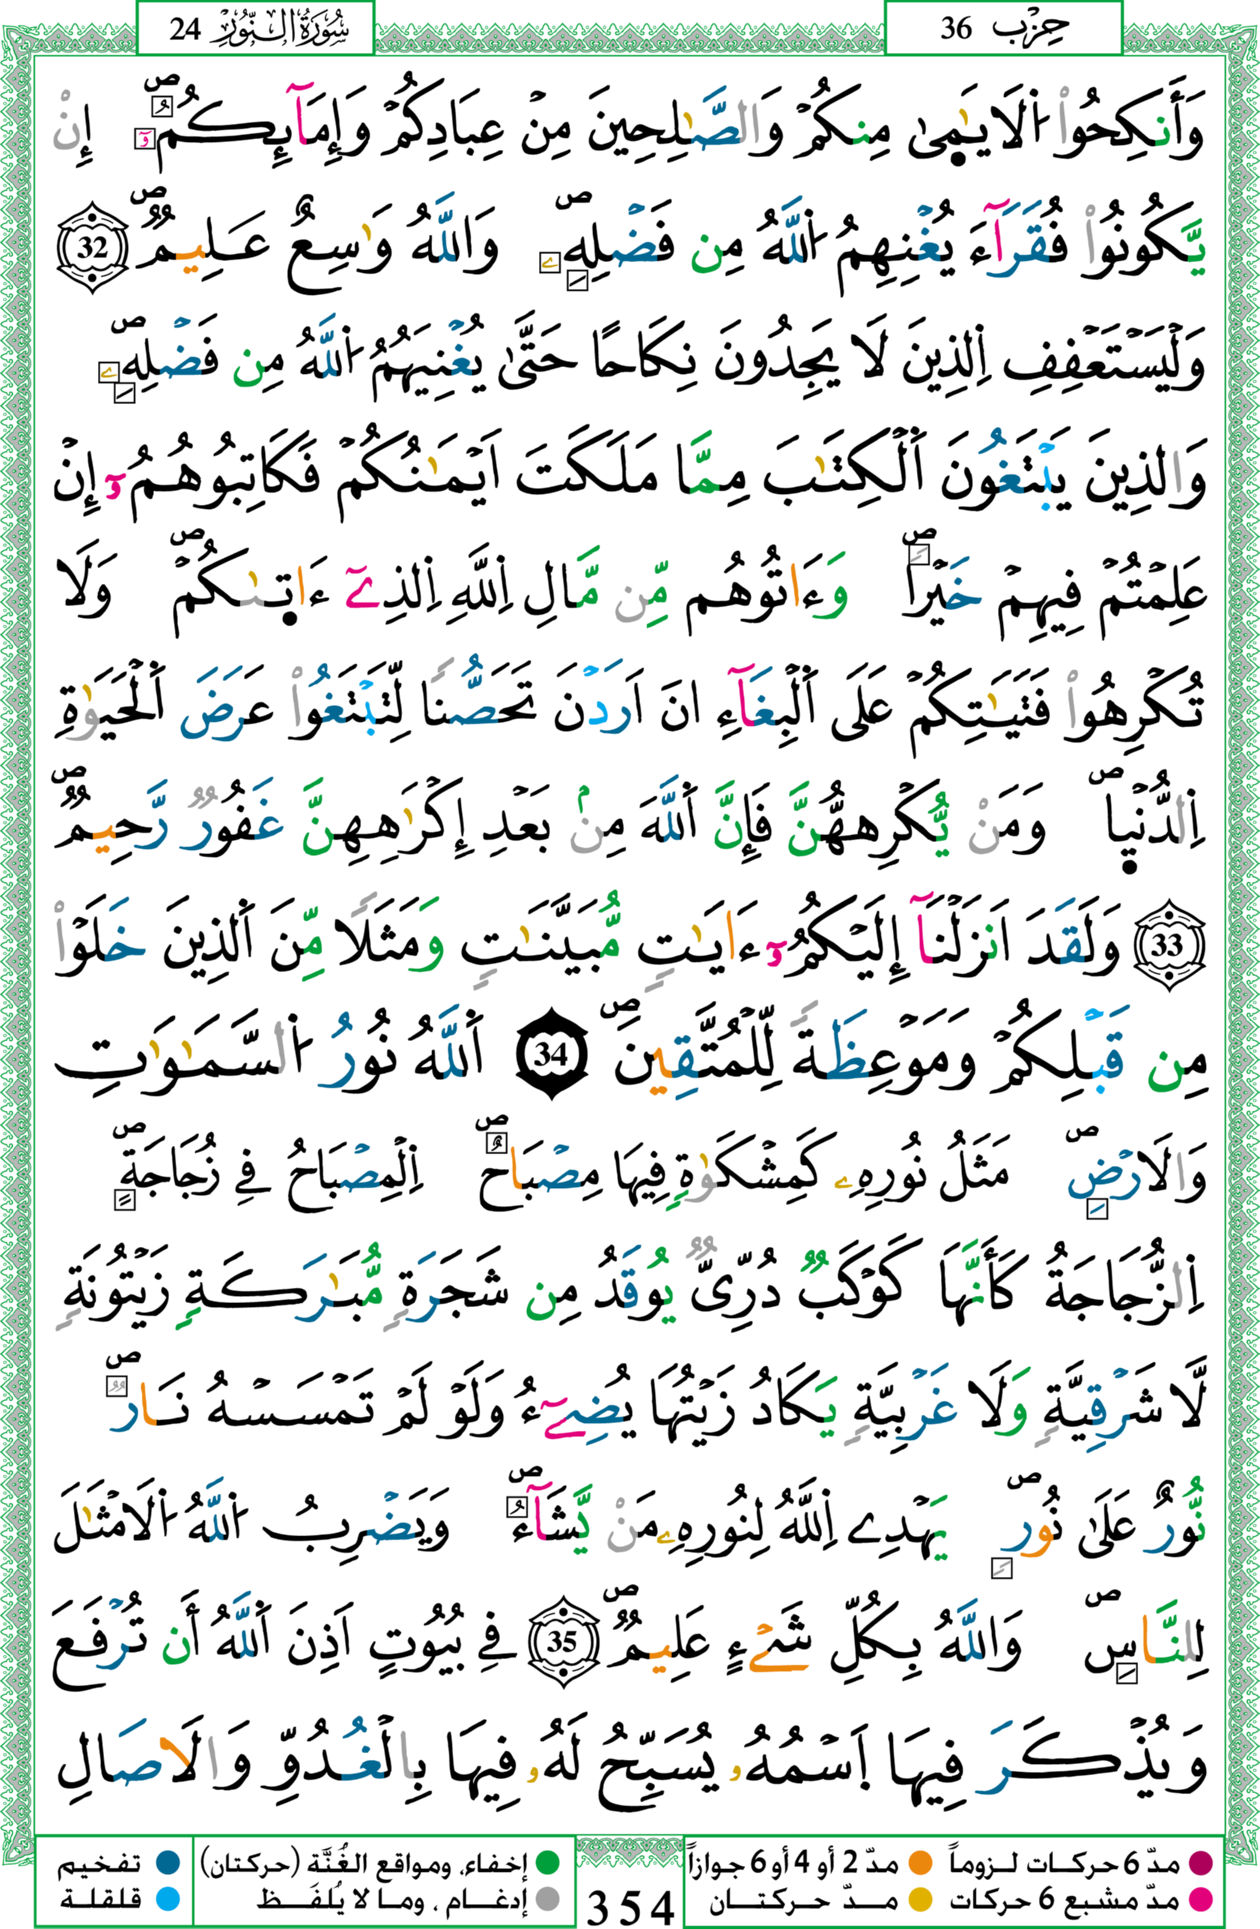 سُورَةُ النُّورِ 24
حِزْب 36
وَأَنكِحُواْ اُ۬لَايَٰم۪يٰ مِنكُمْ وَالصَّٰلِحِينَ مِنْ عِبَادِكُمْ وَإِمَآئِكُمُۥٓۖ إِنْ
يَّكُونُواْ فُقَرَآءَ يُغْنِهِمُ اُ۬للَّهُ مِن فَضْلِهِۦۖ وَاللَّهُ وَٰسِعٌ عَلِيمٞ 32
وَلْيَسْتَعْفِفِ اِ۬لذِينَ لَا يَجِدُونَ نِكَاحًا حَتَّىٰ يُغْنِيَهُمُ اُ۬للَّهُ مِن فَضْلِهِۦۖ
وَالذِينَ يَبْتَغُونَ اَ۬لْكِتَٰبَ مِمَّا مَلَكَتَ اَيْمَٰنُكُمْ فَكَاتِبُوهُمُۥٓ إِنْ
عَلِمْتُمْ فِيهِمْ خَيْراٗۖ وَءَاتُوهُم مِّن مَّالِ اِ۬للَّهِ اِ۬لذِےٓ ءَات۪يٰكُمْۖ وَلَا
تُكْرِهُواْ فَتَيَٰتِكُمْ عَلَى اَ۬لْبِغَآءِ انَ اَرَدْنَ تَحَصُّناٗ لِّتَبْتَغُواْ عَرَضَ اَ۬لْحَيَوٰةِ
اِ۬لدُّنْي۪اۖ وَمَنْ يُّكْرِههُّنَّ فَإِنَّ اَ۬للَّهَ مِنۢ بَعْدِ إِكْرَٰهِهِنَّ غَفُورٞ رَّحِيمٞۖ
33 وَلَقَدَ اَنزَلْنَآ إِلَيْكُمُۥٓ ءَايَٰتٖ مُّبَيَّنَٰتٖ وَمَثَلاٗ مِّنَ اَ۬لذِينَ خَلَوْاْ
مِن قَبْلِكُمْ وَمَوْعِظَةٗ لِّلْمُتَّقِينَۖ 34 اَ۬للَّهُ نُورُ اُ۬لسَّمَٰوَٰتِ
وَالَارْضِۖ مَثَلُ نُورِهِۦ كَمِشْكَوٰةٖ فِيهَا مِصْبَاحٌۖ اِ۬لْمِصْبَاحُ فِے زُجَاجَةٍۖ
اِ۬لزُّجَاجَةُ كَأَنَّهَا كَوْكَبٞ دُرِّيّٞ يُوقَدُ مِن شَجَرَةٖ مُّبَٰرَكَةٖ زَيْتُونَةٖ
لَّا شَرْقِيَّةٖ وَلَا غَرْبِيَّةٖ يَكَادُ زَيْتُهَا يُضِےٓءُ وَلَوْ لَمْ تَمْسَسْهُ نَارٞۖ
نُّورٌ عَلَىٰ نُورٖۖ يَهْدِے اِ۬للَّهُ لِنُورِهِۦ مَنْ يَّشَآءُۖ وَيَضْرِبُ اُ۬للَّهُ اُ۬لَامْثَٰلَ
لِلنَّاسِۖ وَاللَّهُ بِكُلِّ شَےْءٍ عَلِيمٞۖ 35 فِے بُيُوتٍ اَذِنَ اَ۬للَّهُ أَن تُرْفَعَ
وَيُذْكَرَ فِيهَا اَ۪سْمُهُۥ يُسَبِّحُ لَهُۥ فِيهَا بِالْغُدُوِّ وَالَاصَالِ
مدّ 6 حركات لزوماً مدّ 2 أو 4 أو 6 جوازاً
مدّ مشبع 6 حركات مدّ حركتان
354
إخفاء، ومواقع الغُنَّة (حركتان) تفخيم
إدغام ، وما لا يُلفَظ قلقلة